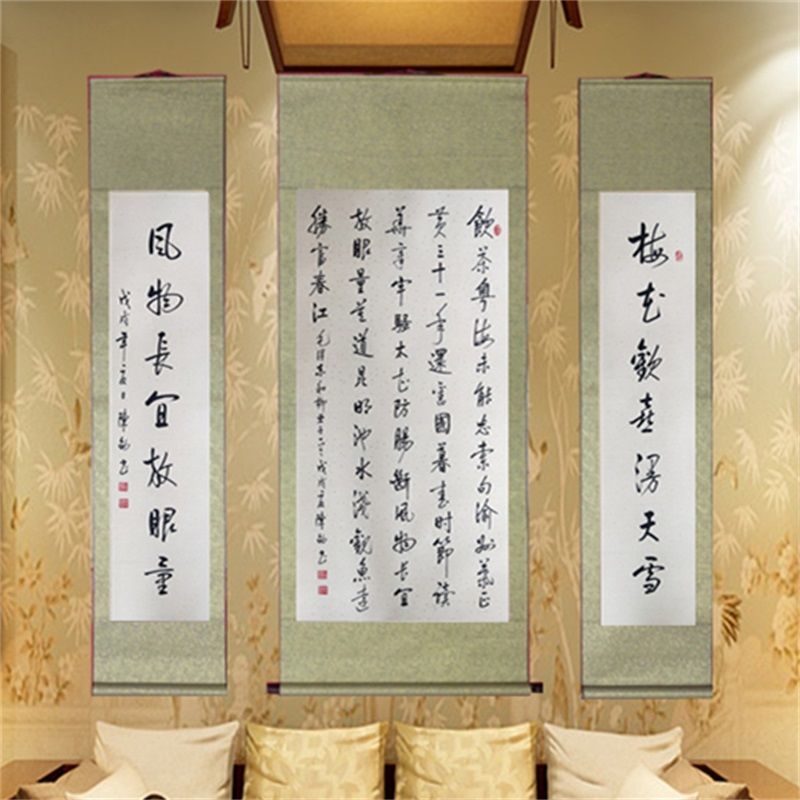 梅花歡喜漫天雪
飲茶粵海未能忘索句渝州葉正
黃三十一年還舊國暮春時節讀
華章牢騷太盛防腸斷風物長宜
放眼量莫道昆明池水淺觀魚
勝富春江
毛澤東和柳亞子 戊戌夏陳書
風物長宜放眼量
戊戌年夏日陳書